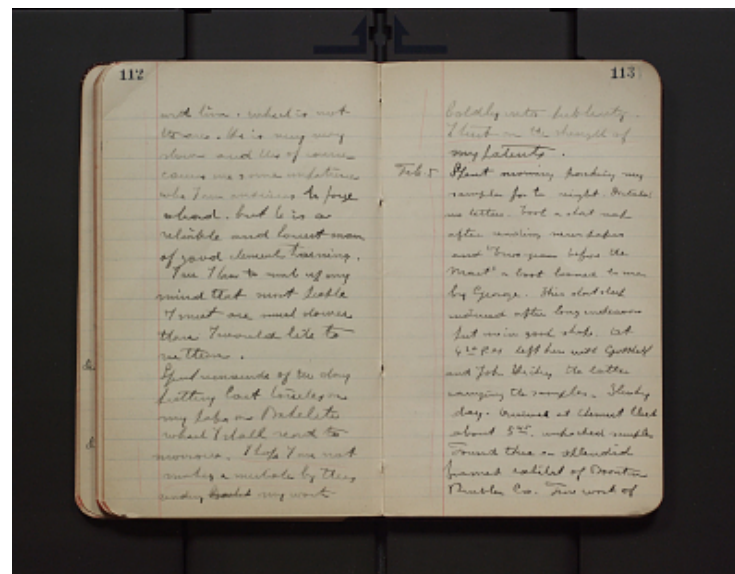 112
and time. which is not
the case. He is very very
slow and this of course
causes me some impatience
who I am anxious to forge
ahead. but he is a
reliable and honest man
of good chemical training.
I see I have to make up my
mind that most people
I meet are much slower
than I would like to
see them.
Spent remainder of the day
putting last touches on
my paper on Bakelite
which I shall read to
morrow. I hope I am not
making a mistake by thus
ending my work
113
boldly into publicity.
I trust on the strength of
my patents.
Feb. 5 Spent morning packing my
samples for to night. Dictated
no letters. Took a short nap
after reading newspapers
and "Two years before the
Mast" a book loaned to me
by George. This short sleep
induced after long endeavors
put me in good shape. At
4 P.M. left here with Gottlieb
and John the latter
carrying the samples. Slushy
day. Arrived at Chemist Club
about 5 unpacked samples
Found there a splendid
framed exhibit of Boonton
Rubber Co. Fine work of